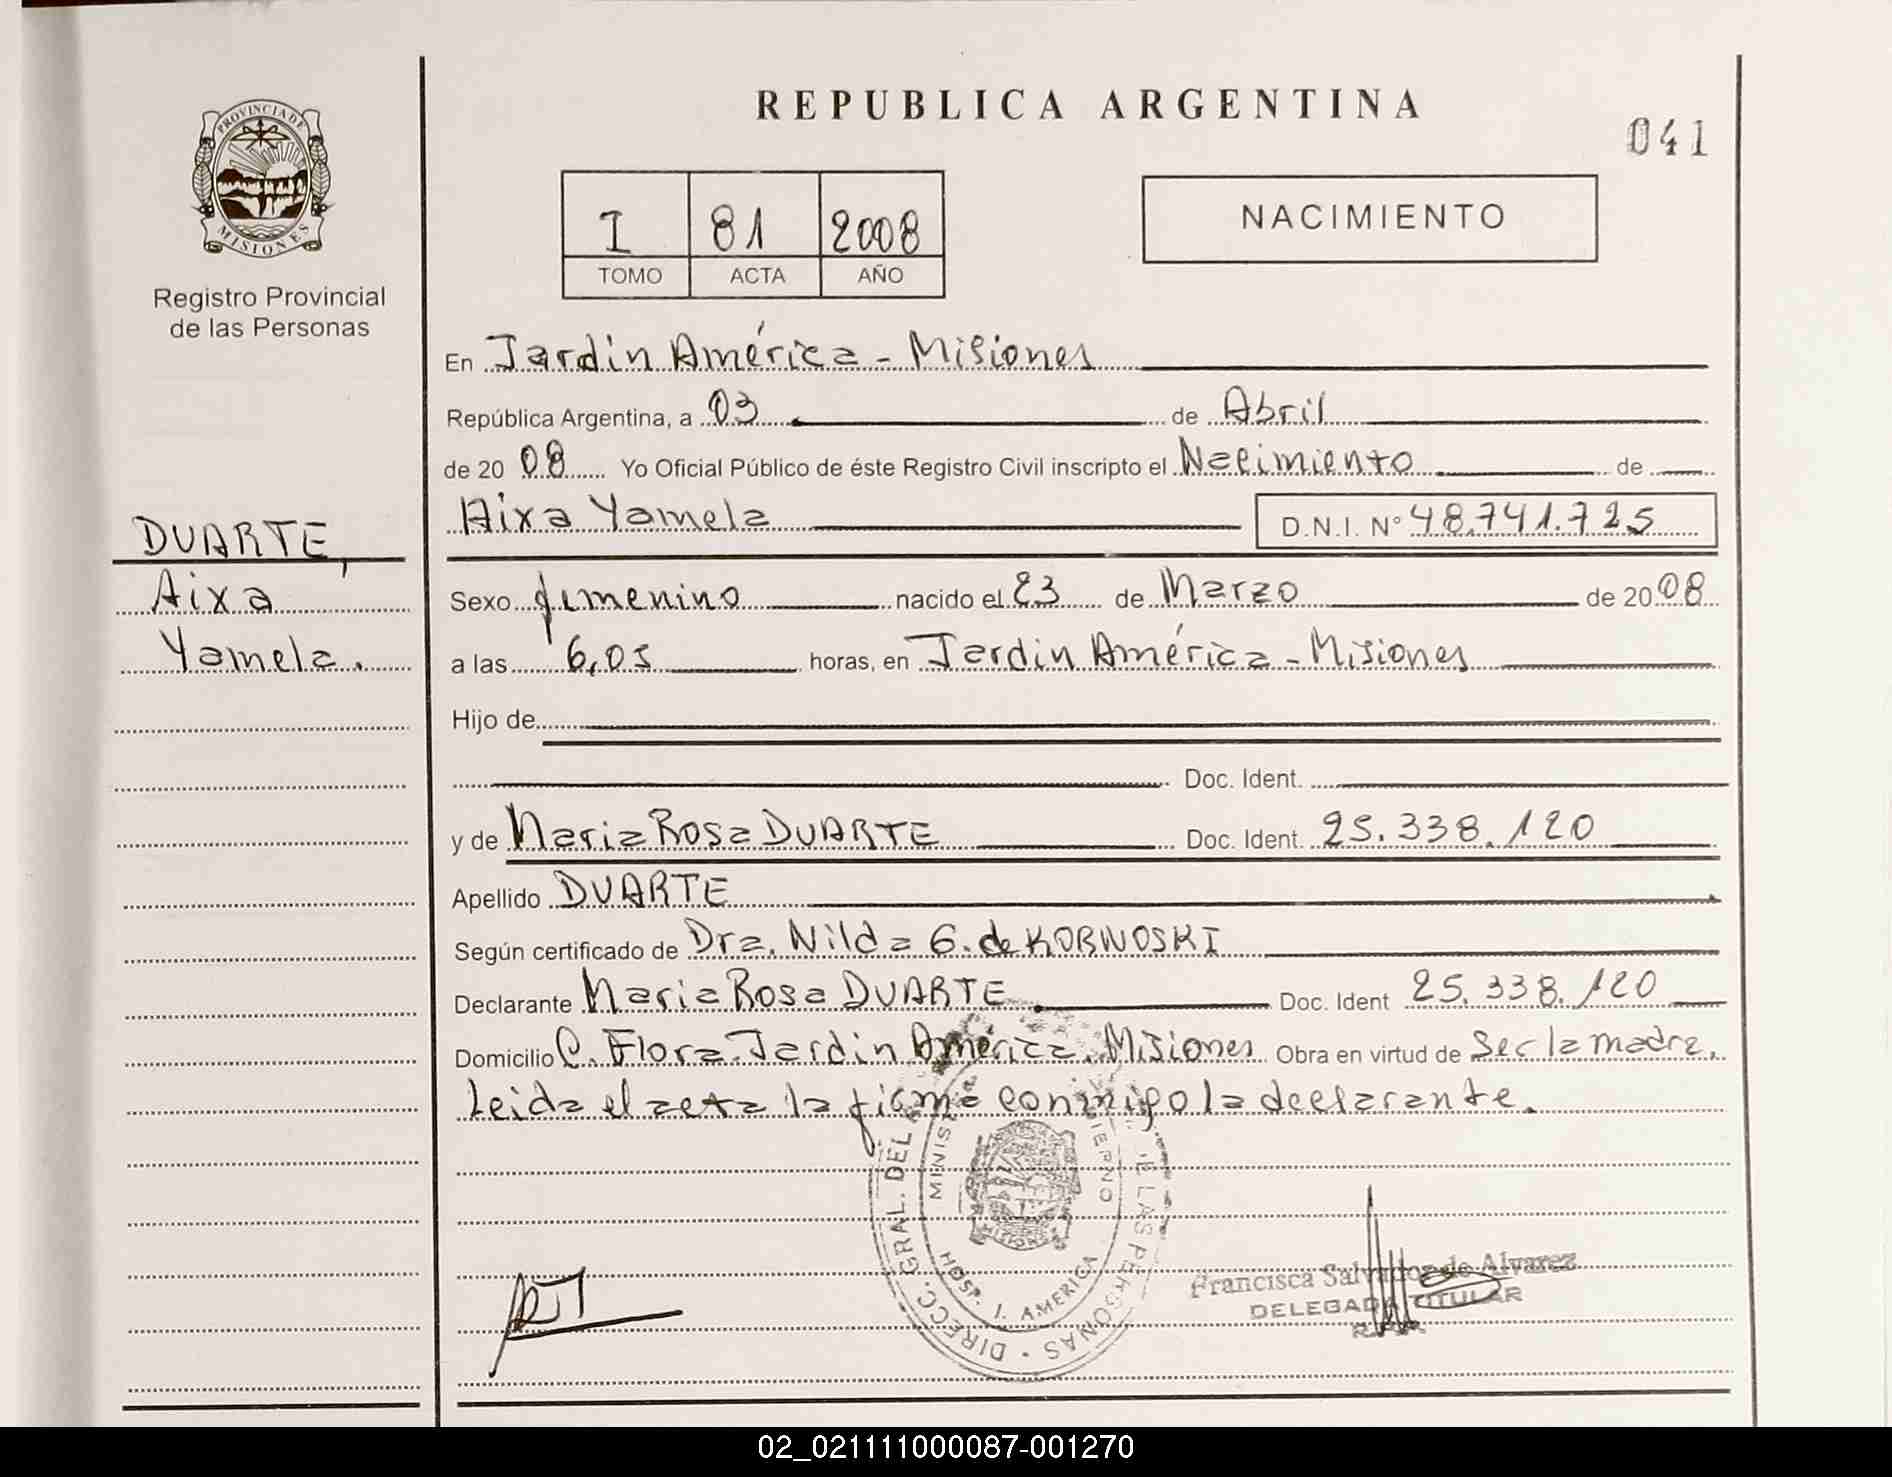 PROVINCIA DE
MISIONES
Registro Provincial
de las Personas
DUARTE,
Aixa
Yamela.
REPUBLICA ARGENTINA
041
I 81 2008
TOMO ACTA AÑO
NACIMIENTO
En Jardin América - Misiones
República Argentina, a 03 de Abril
de 20 08 Yo Oficial Público de éste Registro Civil inscripto el Nacimiento de
Aixa Yamela D.N.I. N° 48.741.725
Sexo femenino nacido el 23 de Marzo de 20 08
a las 6,05 horas, en Jardin América - Misiones
Hijo de
Doc. Ident.
y de Maria Rosa DUARTE Doc. Ident. 25.338.120
Apellido DUARTE
Según certificado de Dra. Nilda G. de KORNOSKI
Declarante Maria Rosa DUARTE Doc. Ident 25.338.120
Domicilio C. Flora. Jardin América. Misiones Obra en virtud de Ser la madre.
Leida el acta la firma conmigo la declarante.
DIRECC. GRAL. DEL LAS PERSONAS
HOSP. J. AMERICA
Francisca Salvador de Alvarez
DELEGADA TITULAR
02_021111000087-001270